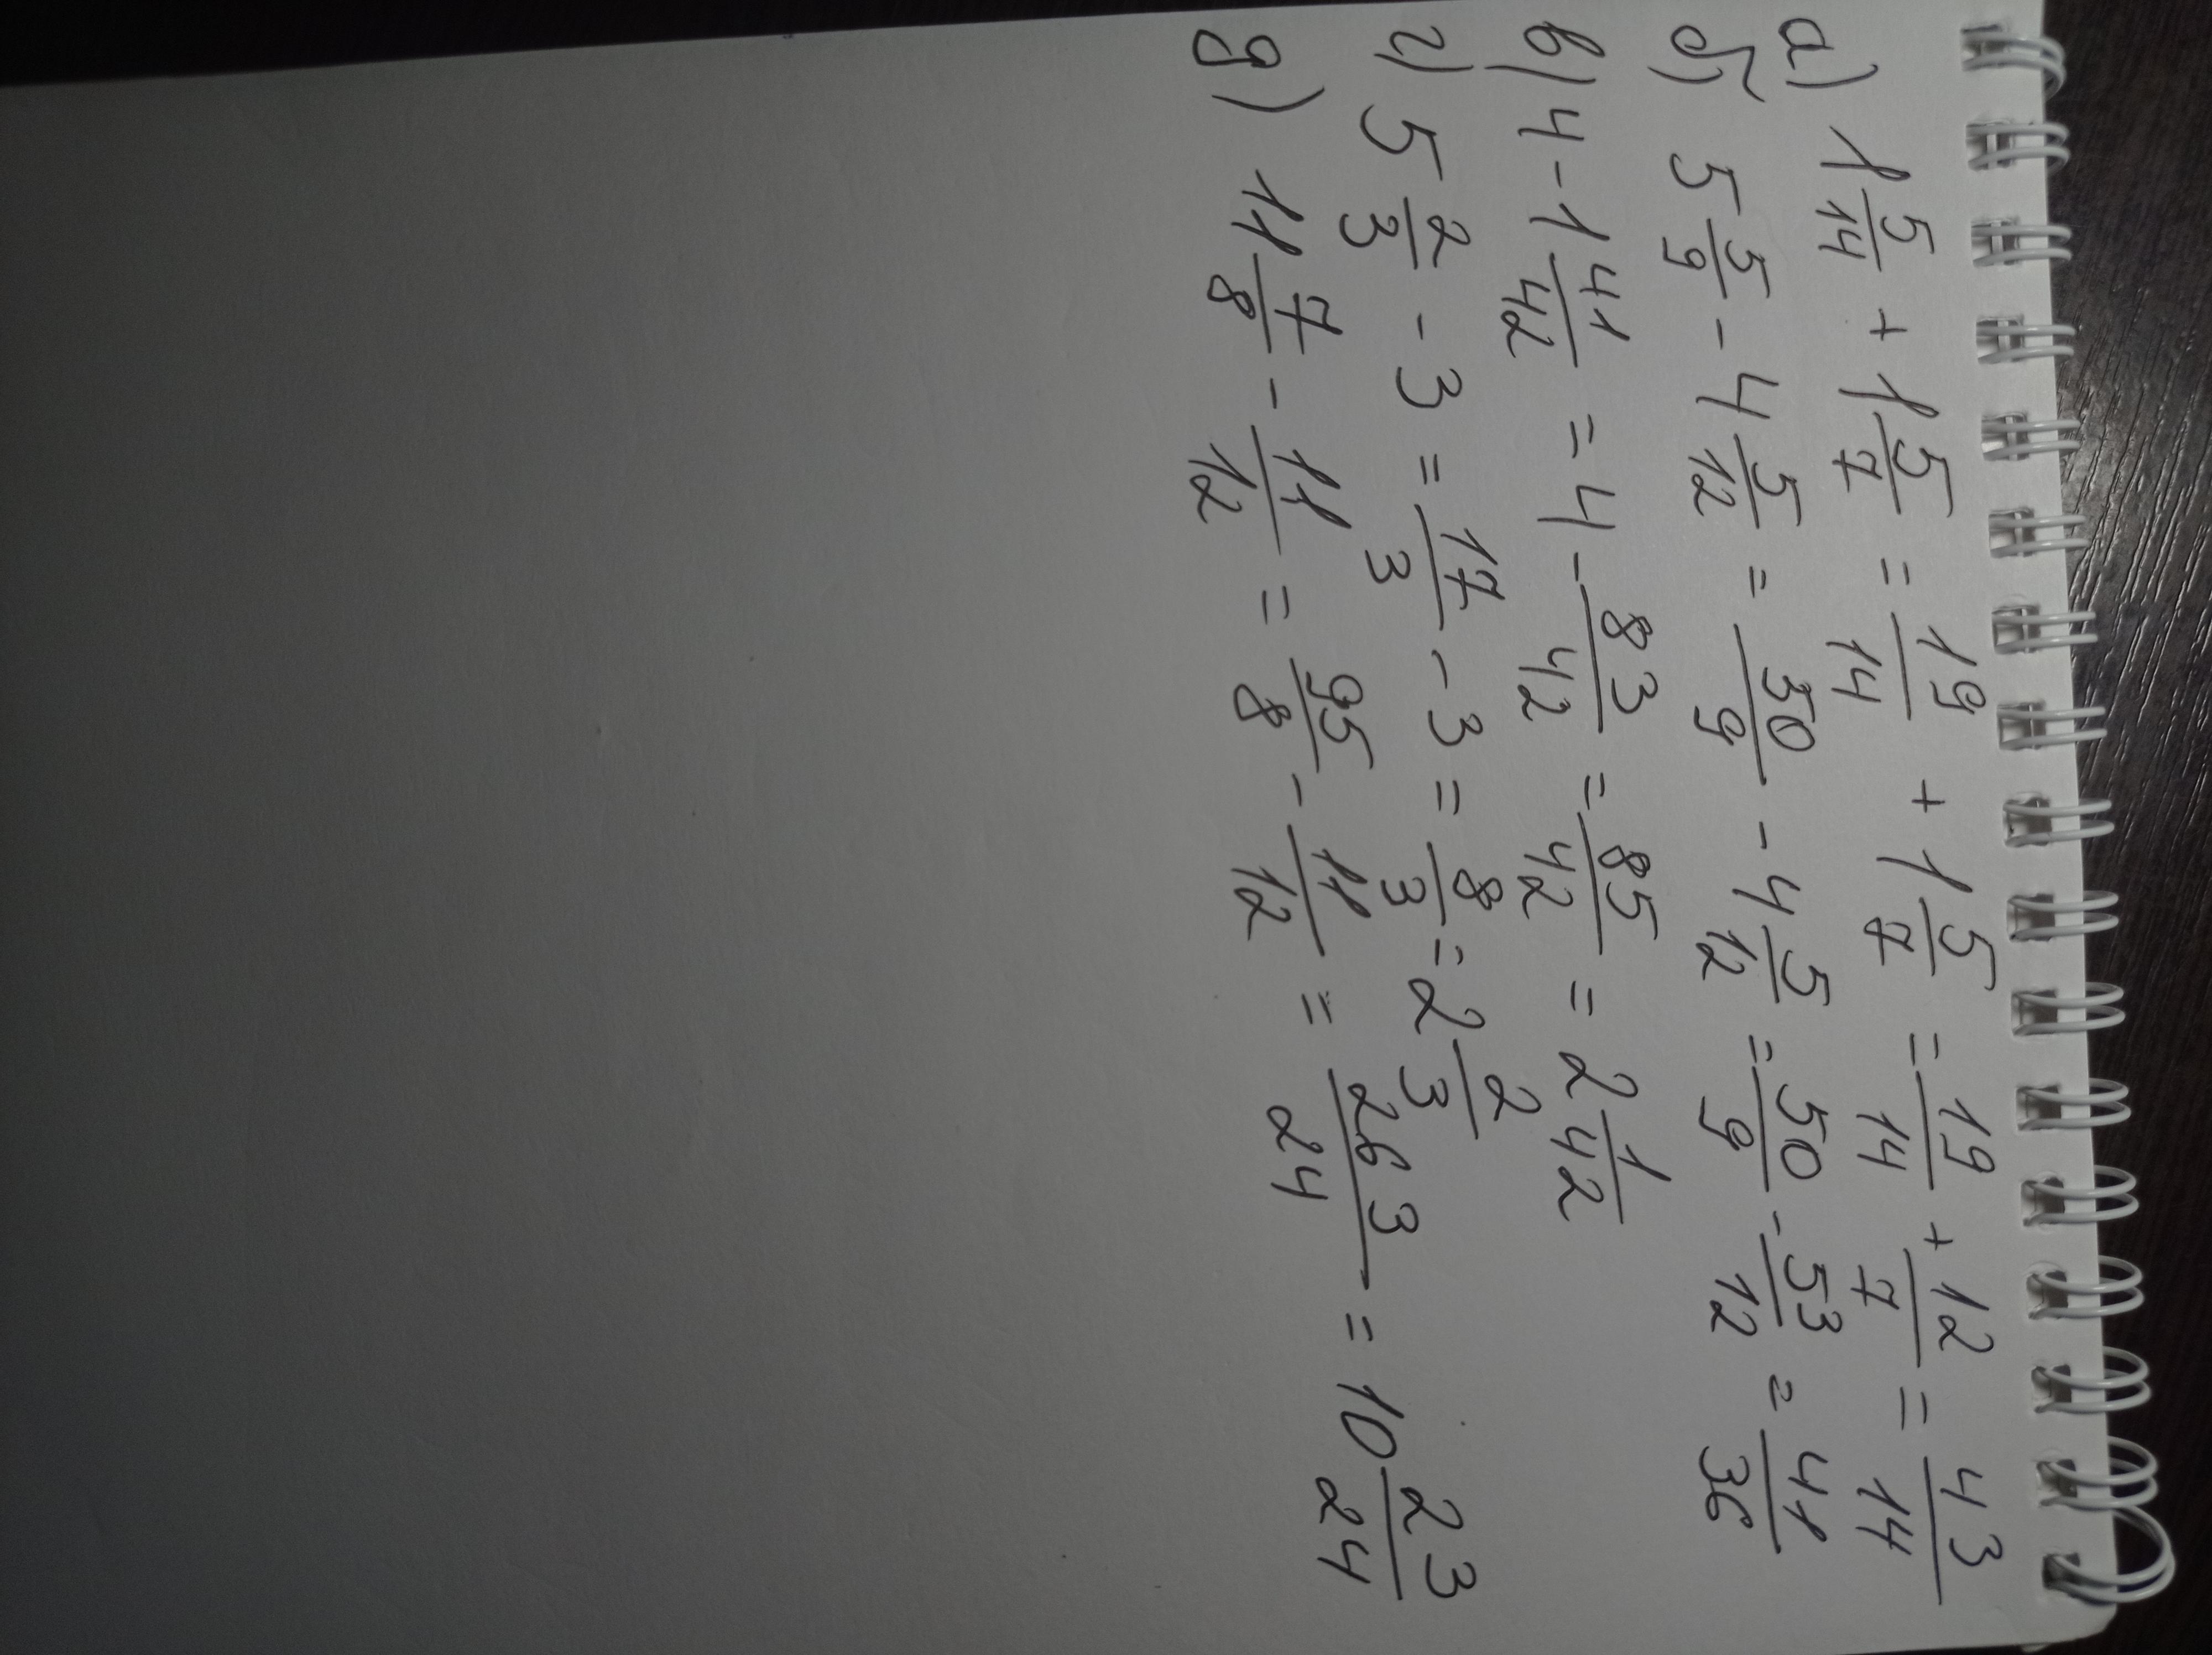 а) 1 5/14 + 1 5/7 = 19/14 + 1 5/7 = 19/14 + 12/7 = 43/14
б) 5 5/9 - 4 5/12 = 50/9 - 4 5/12 = 50/9 - 53/12 = 41/36
в) 4 - 1 41/42 = 4 - 83/42 = 85/42 = 2 1/42
г) 5 2/3 - 3 = 17/3 - 3 = 8/3 = 2 2/3
д) 11 7/8 - 11/12 = 95/8 - 11/12 = 263/24 = 10 23/24